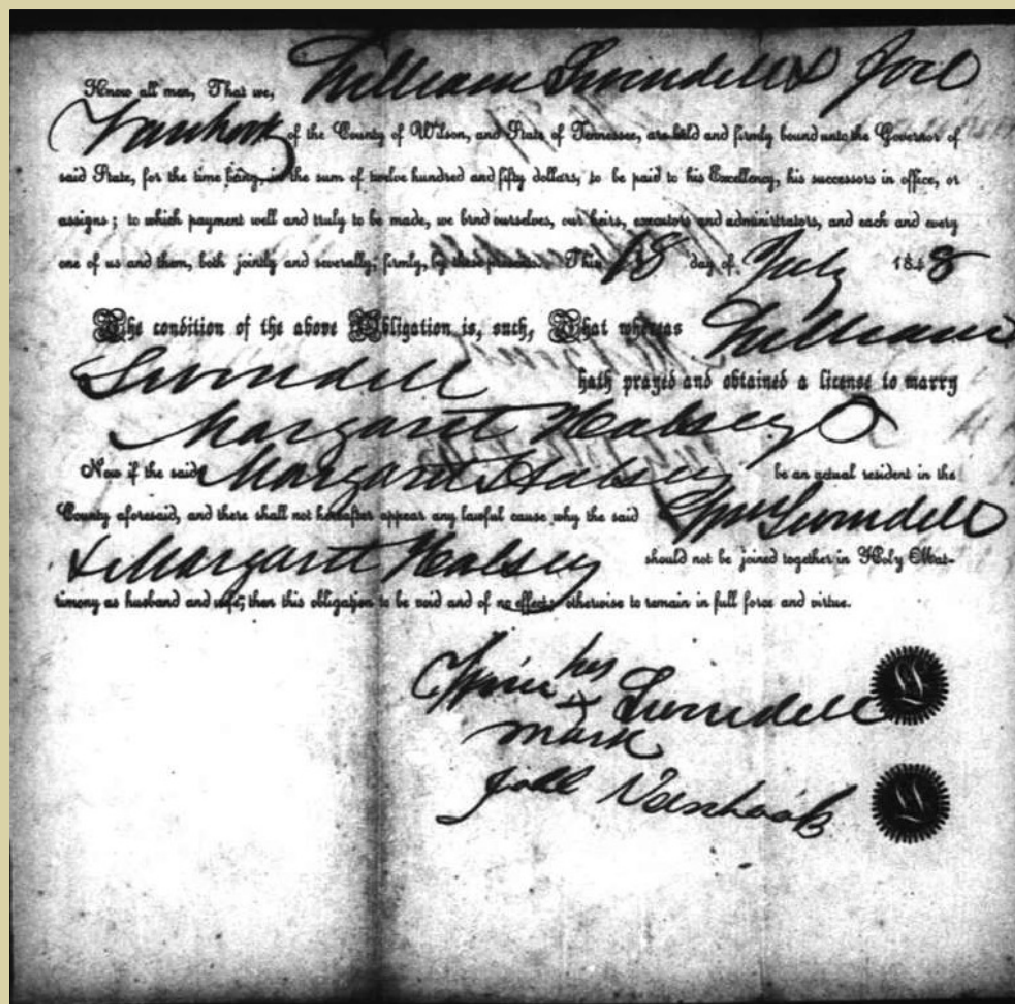 Know all men, That we, William Swindell & Joel
Vanhook of the County of Wilson, and State of Tennessee, are held and firmly bound unto the Governor of
said State, for the time being, in the sum of twelve hundred and fifty dollars, to be paid to his Excellency, his successors in office, or
assigns; to which payment well and truly to be made, we bind ourselves, our heirs, executors and administrators, and each and every
one of us and them, both jointly and severally, firmly, by these presents. This 18 day of July 1848
The condition of the above Obligation is, such, That whereas William
Swindell hath prayed and obtained a license to marry
Margaret Halsey
Now if the said Margaret Halsey be an actual resident in the
County aforesaid, and there shall not hereafter appear any lawful cause why the said Wm Swindell
& Margaret Halsey should not be joined together in Holy Mat-
rimony as husband and wife, then this obligation to be void and of no effect; otherwise to remain in full force and virtue.
his
Wm x Swindell
mark
Joel Vanhook